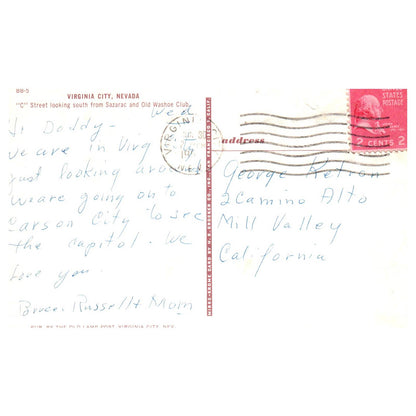 BB-5
VIRGINIA CITY, NEVADA
"C" Street looking south from Sazarac and Old Washoe Club.
Wed
Hi Daddy-
We are in Virg
just looking around
We are going on to
Carson City to see
the capitol. We
love you.
Bruce, Russell & Mom
PUB. BY THE OLD LAMP POST, VIRGINIA CITY, NEV.
address
STATES
POSTAGE
2 CENTS 2
George Ketron
2 Camino Alto
Mill Valley
California